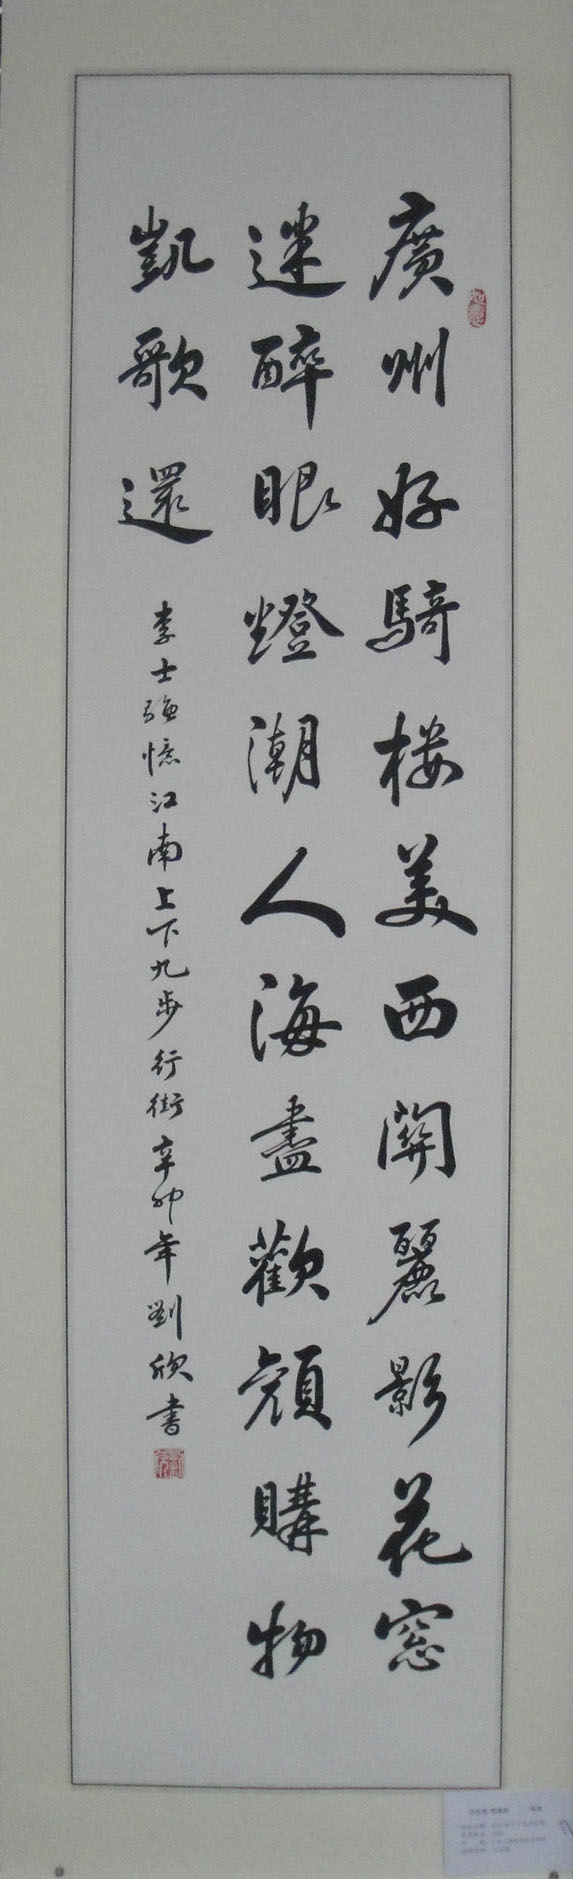 廣州好騎楼美西関麗影花窓
迷醉眼燈潮人海盡歡顔購物
凱歌還
李士強憶江南上下九步行街辛卯年劉欣書